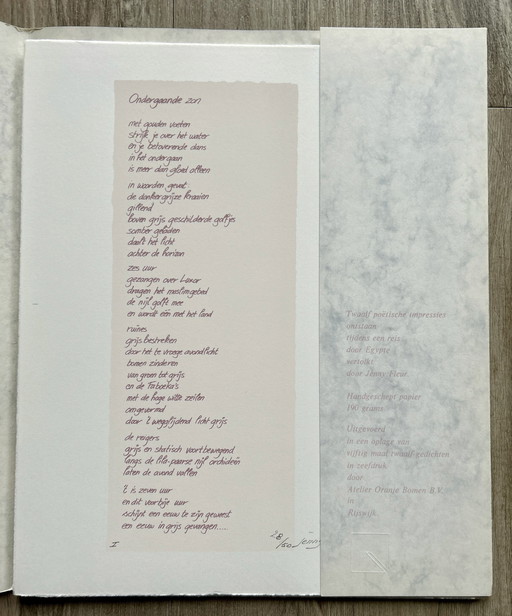 Ondergaande zon
met gouden voeten
strijk je over het water
en je betoverende dans
in het ondergaan
is meer dan gloed alleen
in woorden gevat
de donkergrijze kraaien
gillend
boven grijs geschilderde golfjes
somber geladen
daalt het licht
achter de horizon
zes uur
gezangen over Luxor
dragen het muslimgebed
de nijl golft mee
en wordt één met het land
ruïnes
grijs bestreken
door het te vroege avondlicht
bomen zinderen
van groen tot grijs
en de
met de hoge witte zeilen
omgevormd
door 't wegglijdend licht grijs
de reigers
grijs en statisch voortbewegend
langs de lila-paarse nijl orchideeën
laten de avond vallen
't is zeven uur
en dit voorbije uur
schijnt een eeuw te zijn geweest
een eeuw in grijs gevangen....
I
28/50 Jenny
Twaalf poëtische impressies
ontstaan
tijdens een reis
door Egypte
vertolkt
door Jenny Fleur
Handgeschept papier
190 grams
Uitgevoerd
in een oplage van
vijftig maal twaalf gedichten
in zeefdruk
door
Atelier Oranje Bomen B.V.
in
Rijswijk